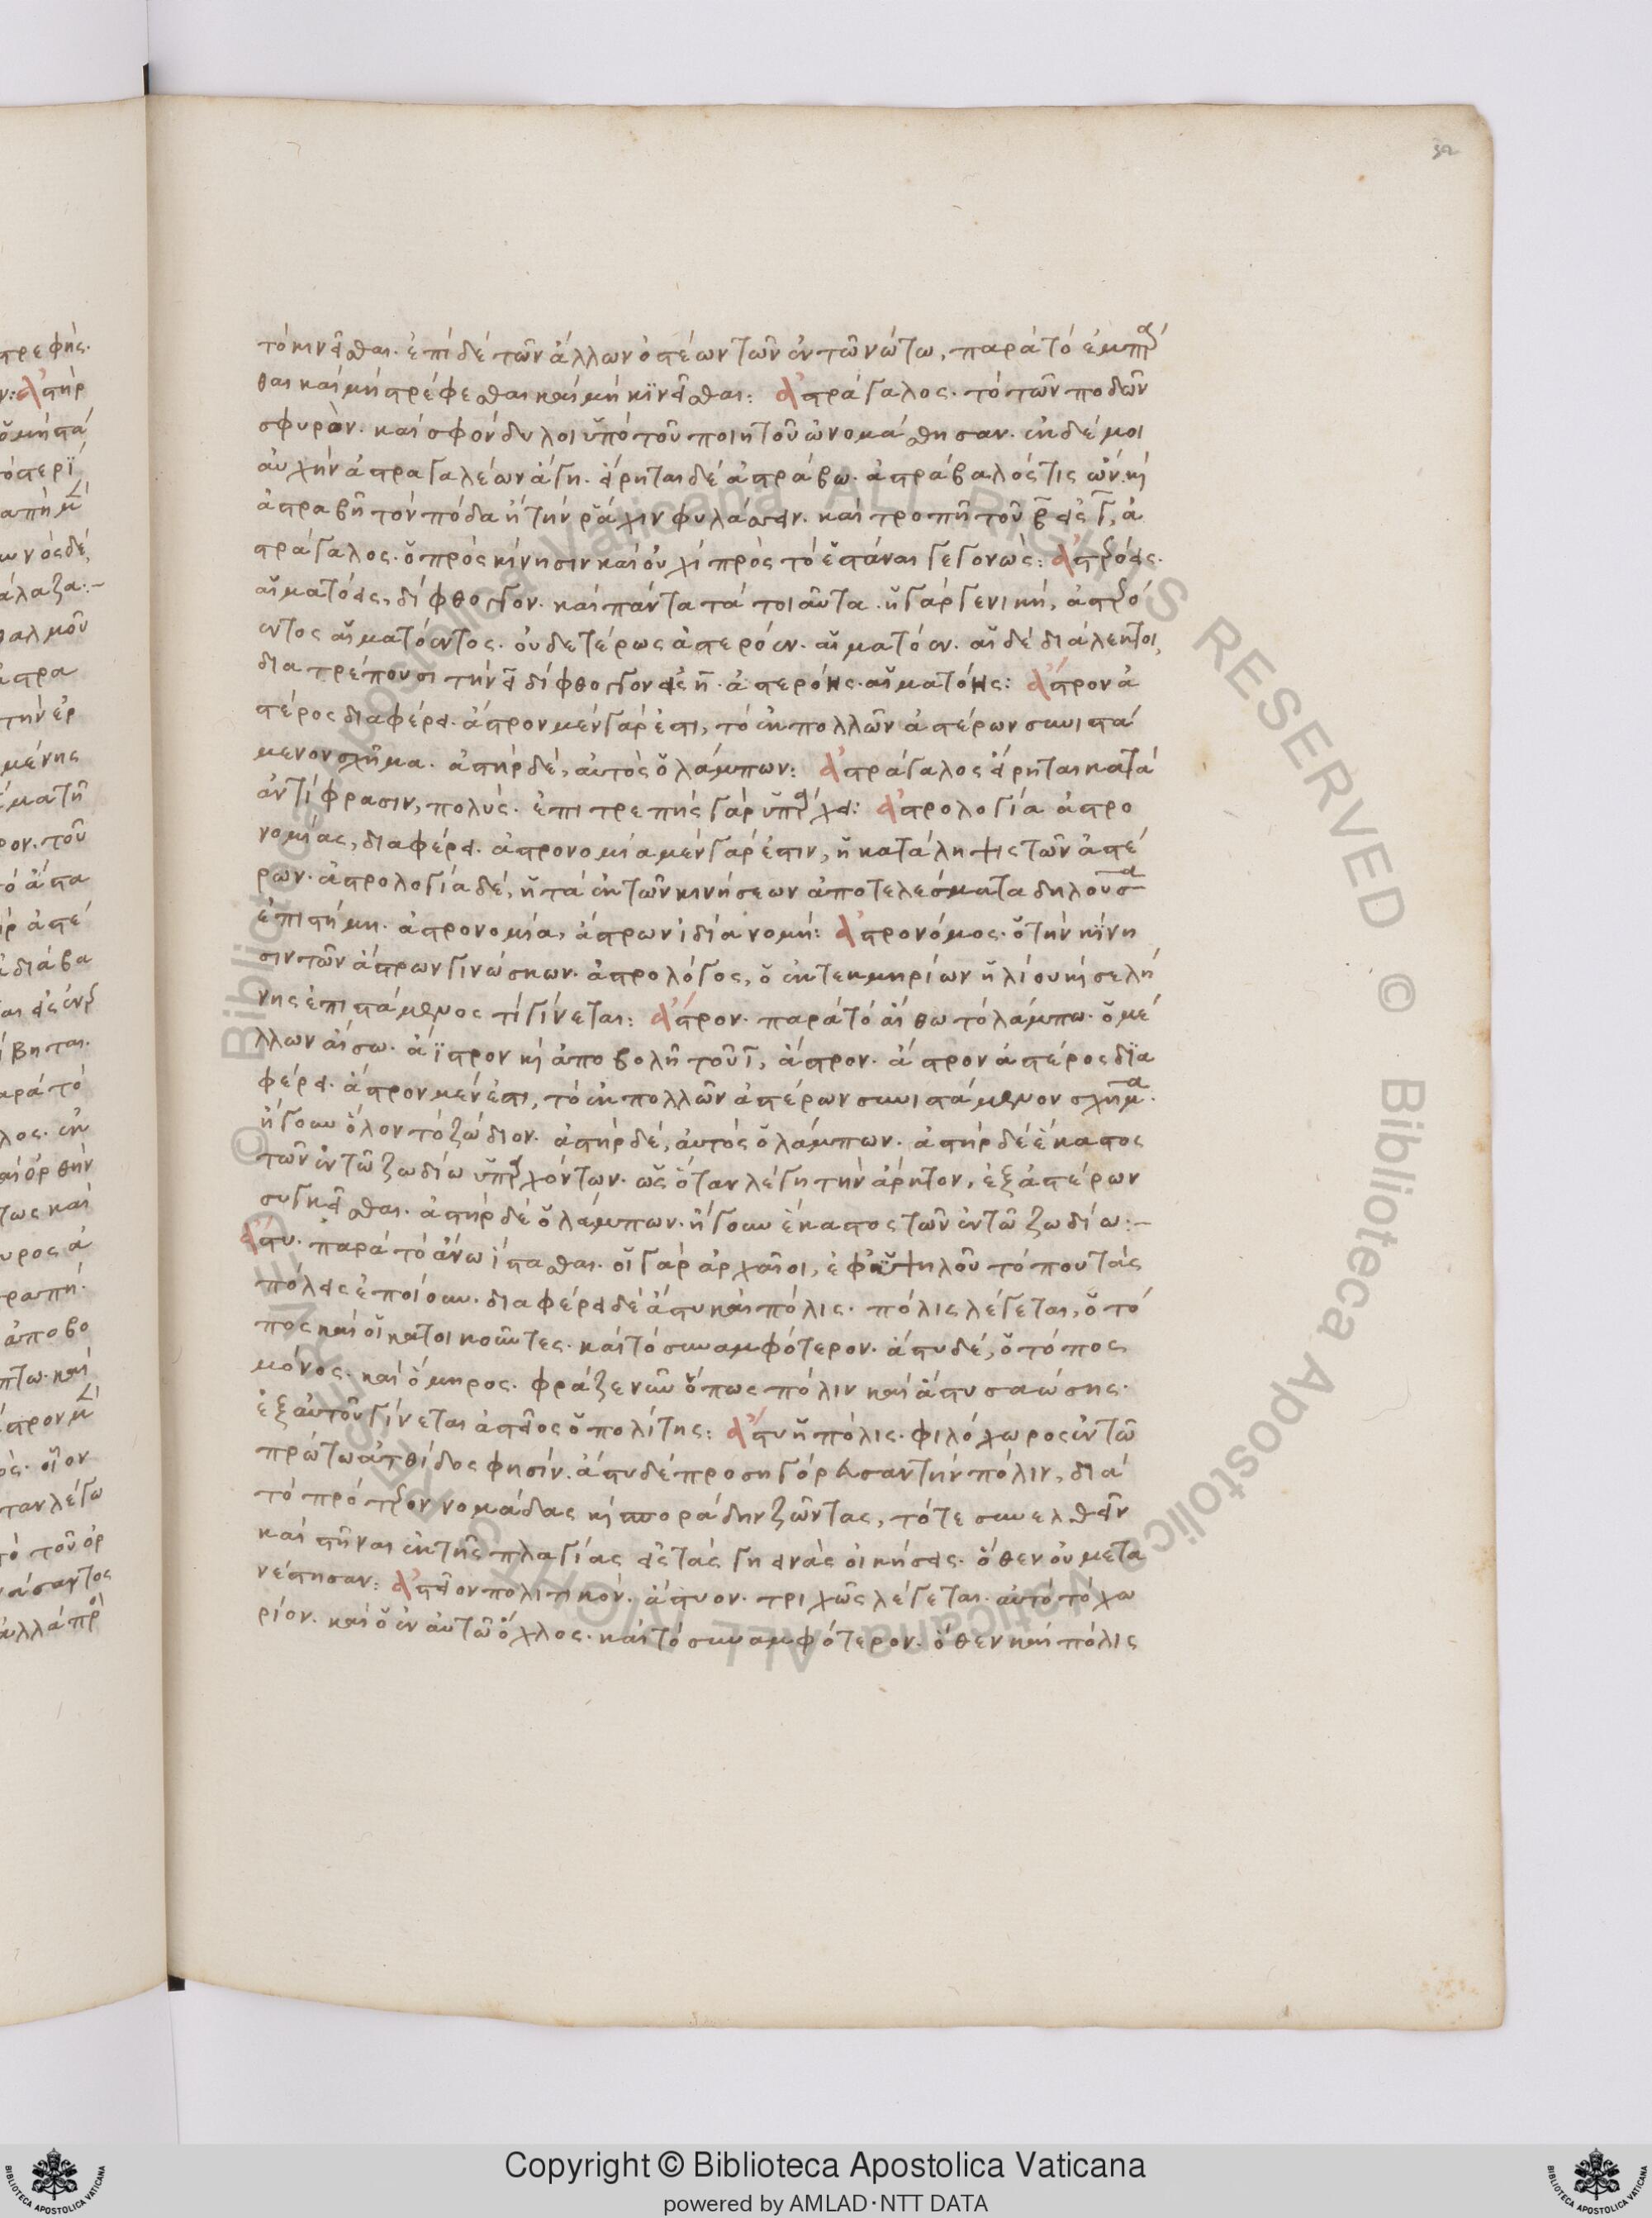 32
τὸ κινεῖσθαι. ἐπὶ δὲ τῶν ἄλλων ὀστέων τῶν ἐν τῶ νώτω, παρὰ τὸ
θαι καὶ μὴ στρέφεσθαι καὶ μὴ κινεῖσθαι: ἀστράγαλος. τὸ τῶν ποδῶν
σφυρὸν. καὶ σφόνδυλοι ὑπὸ τοῦ ποιητοῦ ὠνομάσθησαν. ἐκ δέ μοι
αὐχὴν ἀστραγαλέων ἄγη. εἴρηται δὲ ἀστράβω. ἀστράβαλός τις ὢν. κὶ
ἀστραβῆ τὸν πόδα ἢ τὴν ῥάχιν φυλάσσειν. καὶ τροπῆ τοῦ β εἰς γ, ἀ
στράγαλος. ὁ πρὸς κίνησιν καὶ οὐχὶ πρὸς τὸ ἑστάναι γεγονώς: ἀστερόεις.
αἱματόεις, δίφθογγον. καὶ πάντα τὰ τοιαῦτα. ἡ γὰρ γενικὴ, ἀστερό
εντος αἱματόεντος. οὐδετέρως ἀστερόεν. αἱματόεν. αἱ δὲ διάλεκτοι,
διατρέπουσι τὴν ει δίφθογγον εἰς η. ἀστερόης. αἱματόης: ἄστρον ἀ
στέρος διαφέρει. ἄστρον μὲν γάρ ἐστι, τὸ ἐκ πολλῶν ἀστέρων συνιστά
μενον σχῆμα. ἀστὴρ δέ, αὐτὸς ὁ λάμπων: ἀστράγαλος εἴρηται κατὰ
ἀντίφρασιν, πολὺς. ἐπιτρεπὴς γὰρ ὑπάρχει: ἀστρολογία ἀστρο
νομίας, διαφέρει. ἀστρονομία μὲν γάρ ἐστιν, ἡ κατάληψις τῶν ἀστέ
ρων. ἀστρολογία δέ, ἡ τὰ ἐκ τῶν κινήσεων ἀποτελέσματα δηλοῦσα
ἐπιστήμη. ἀστρονομία, ἄστρων ἰδία νομή: ἀστρονόμος. ὁ τὴν κίνη
σιν τῶν ἄστρων γινώσκων. ἀστρολόγος, ὁ ἐκ τεκμηρίων ἡλίου κὶ σελή
νης ἐπιστάμενος τί γίνεται: ἄστρον. παρὰ τὸ αἴθω τὸ λάμπω. ὁ μέ
λλων αἴσω. ἄϊστρον κὶ ἀποβολῆ τοῦ ι, ἄστρον. ἄστρον ἀστέρος δια
φέρει. ἄστρον μέν ἐστι, τὸ ἐκ πολλῶν ἀστέρων συνιστάμενον σχῆμα.
ἤγουν ὅλον τὸ ζώδιον. ἀστὴρ δέ, αὐτὸς ὁ λάμπων. ἀστὴρ δὲ ἕκαστος
τῶν ἐν τῶ ζωδίω ὑπαρχόντων. ὡς ὅταν λέγη τὴν ἄρκτον, ἐξ ἀστέρων
συγκεῖσθαι. ἀστὴρ δὲ ὁ λάμπων. ἤγουν ἕκαστος τῶν ἐν τῶ ζωδίω:-
ἄστυ. παρὰ τὸ ἄνω ἵστασθαι. οἱ γὰρ ἀρχαῖοι, ἐφ' ὑψηλοῦ τόπου τὰς
πόλεις ἐποίουν. διαφέρει δὲ ἄστυ καὶ πόλις. πόλις λέγεται, ὁ τό
πος καὶ οἱ κατοικοῦντες. καὶ τὸ συναμφότερον. ἄστυ δέ, ὁ τόπος
μόνος. καὶ ὅμηρος. φράζε νῦν ὅπως πόλιν καὶ ἄστυ σαώσης.
ἐξ αὐτοῦ γίνεται ἀστεῖος ὁ πολίτης: ἄστυ ἡ πόλις. φιλόχωρος ἐν τῶ
πρώτω ἀτθίδος φησίν. ἄστυ δὲ προσηγόρευσαν τὴν πόλιν, διὰ
τὸ πρότερον νομάδας κὶ σποράδην ζῶντας, τότε συνελθεῖν
καὶ στῆναι ἐκ τῆς πλαγίας εἰς τὰς γηεινὰς οἰκήσεις. ὅθεν οὐ μετα
νέστησαν: ἀστεῖον πολιτικόν. ἄστυον. τριχῶς λέγεται. αὐτὸ τὸ χω
ρίον. καὶ ὁ ἐν αὐτῶ ὄχλος. καὶ τὸ συναμφότερον. ὅθεν καὶ πόλις
© Biblioteca Apostolica Vaticana ALL RIGHTS RESERVED
Copyright © Biblioteca Apostolica Vaticana
powered by AMLAD·NTT DATA